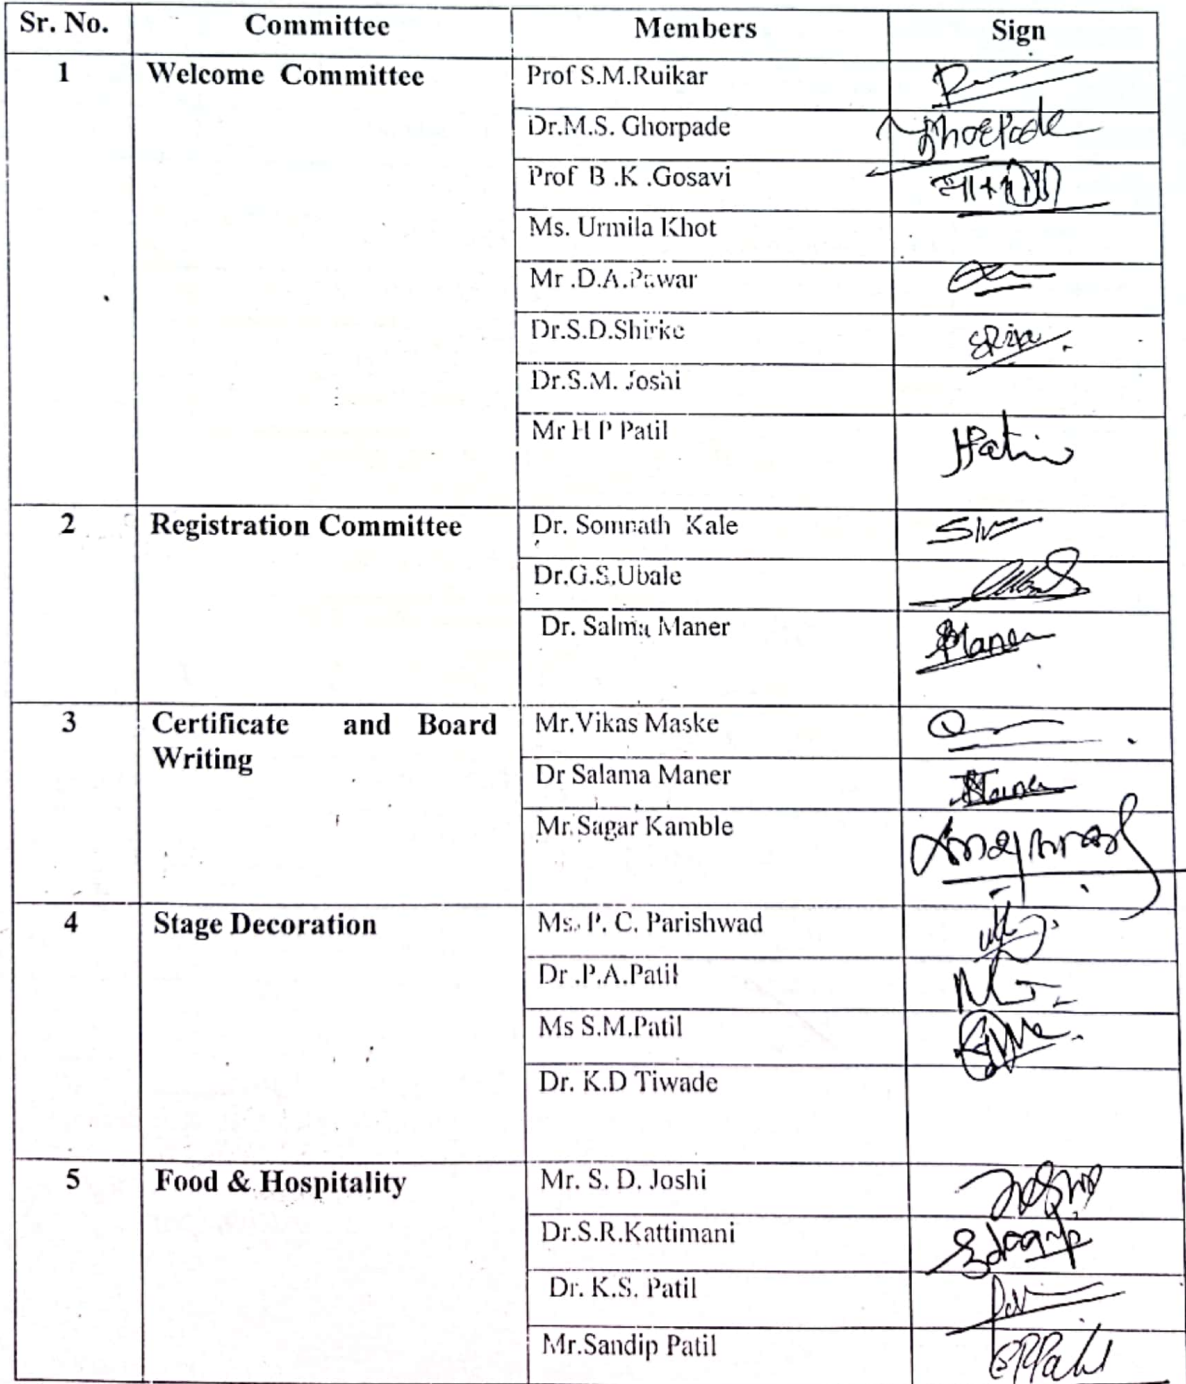 Sr. No. Committee Members Sign
1 Welcome Committee Prof S.M.Ruikar
Dr.M.S. Ghorpade Ghorpade
Prof B .K .Gosavi
Ms. Urmila Khot
Mr .D.A.Pawar
Dr.S.D.Shirke
Dr.S.M. Joshi
Mr H P Patil
2 Registration Committee Dr. Somnath Kale
Dr.G.S.Ubale
Dr. Salma Maner Maner
3 Certificate and Board Mr.Vikas Maske
Writing
Dr Salama Maner
Mr.Sagar Kamble
4 Stage Decoration Ms. P. C. Parishwad
Dr .P.A.Patil
Ms S.M.Patil
Dr. K.D Tiwade
5 Food & Hospitality Mr. S. D. Joshi
Dr.S.R.Kattimani
Dr. K.S. Patil
Mr.Sandip Patil